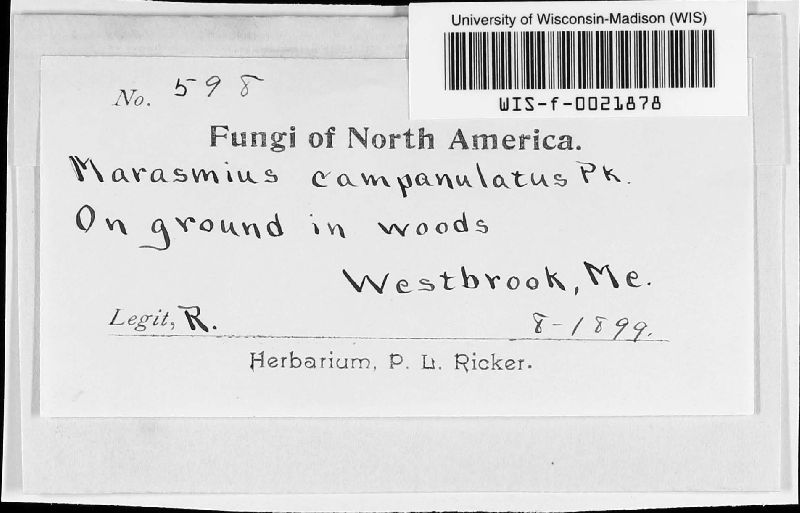 University of Wisconsin-Madison (WIS)
WIS-f-0021878
No. 598
Fungi of North America.
Marasmius campanulatus Pk.
On ground in woods
Westbrook, Me.
Legit, R. 8-1899.
Herbarium, P. L. Ricker.